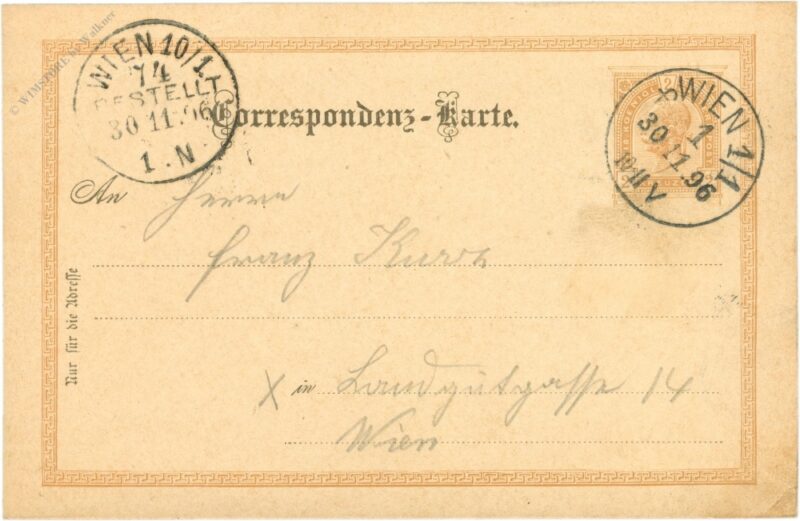 © WIMSTORE H. Walkner
WIEN 10/1.
74
BESTELLT
30 11. 96
1. N
WIEN 1/1
1
30 11. 96
V
Correspondenz-Karte.
An Herrn
Franz
Nur für die Adresse
X in Landgutgasse 14
Wien